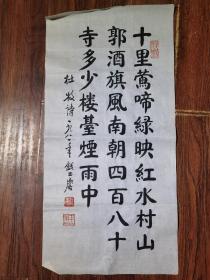 十里莺啼綠映紅水村山
郭酒旗風南朝四百八十
寺多少楼臺煙雨中
杜牧詩